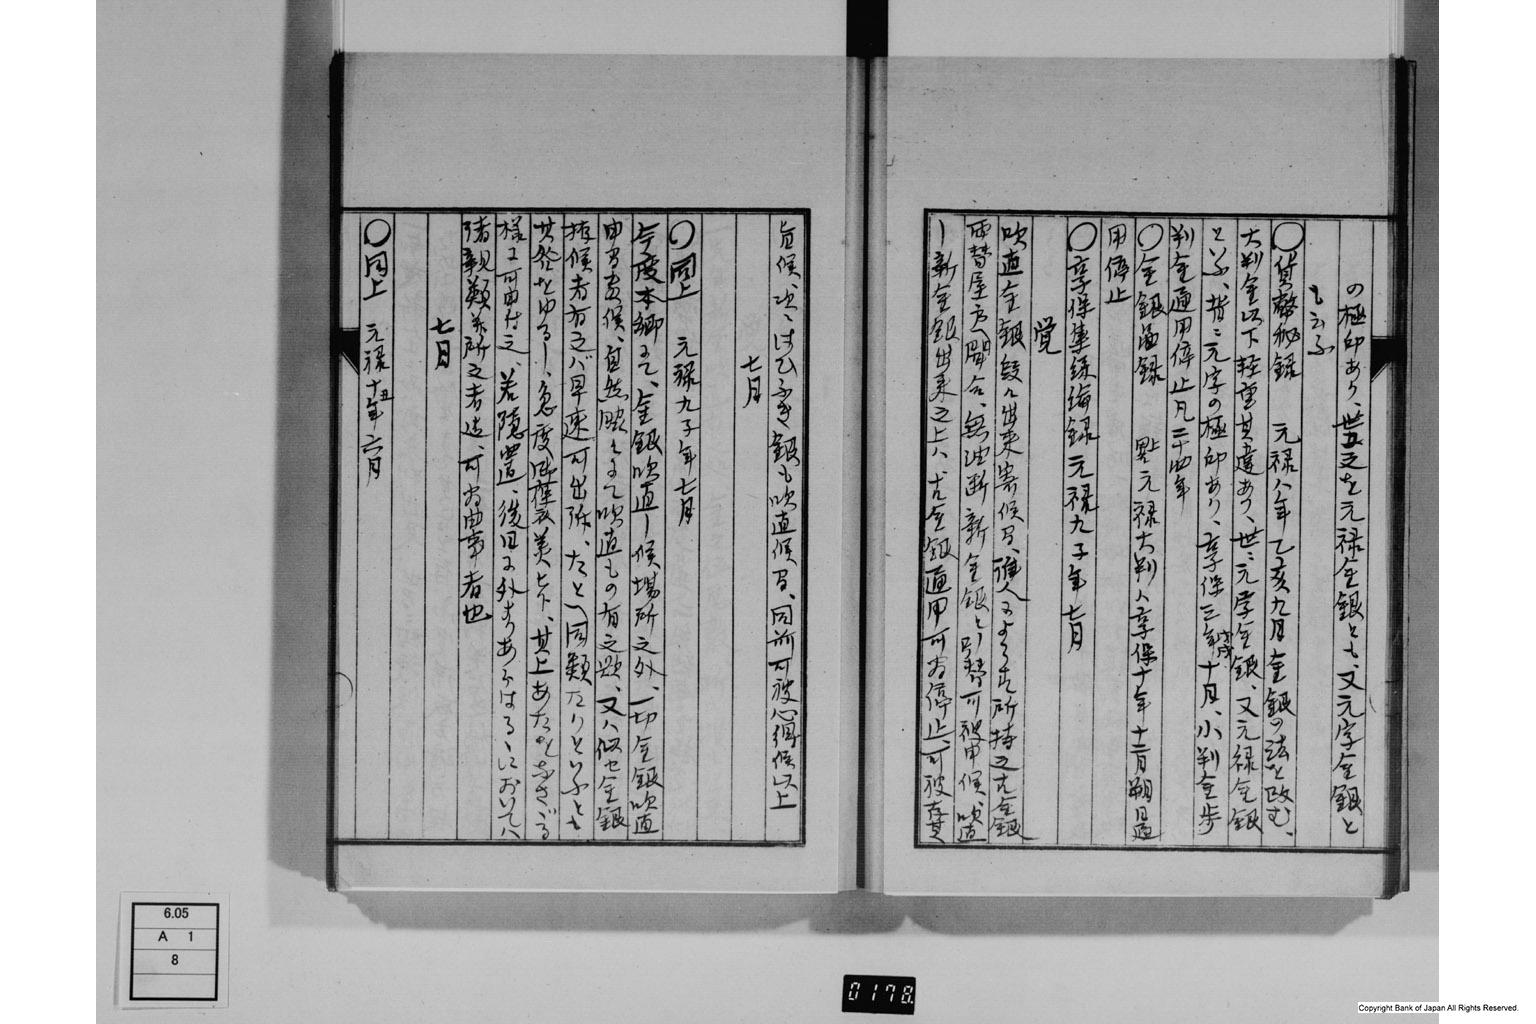 の極印あり、世之を元禄金銀とも、又元字金銀と
もふ
〇貨幣秘録　元禄八年乙亥九月金銀の法を改む、
大判金以下軽重其違あり、世ニ元字金銀、又元禄金銀
とふ、背ニ元字の極印あり、享保三年戊戌十月、小判金歩
判金通用停止凡二十四年
〇金銀図録　元禄大判ハ享保十年十二月朔日通
用停止
〇享保集録　元禄九子年七月
覚
吹直金銀段々出来寄候間、所持之古金銀
両替屋方聞合、無油断新金銀と引替可被申候、吹直
し新金銀出来之上ハ、古金銀通用可為停止、可被存其
旨候、次ニはひふき銀も吹直候間、同前可被心得候以上
七月
〇同上　元禄九子年七月
今度本郷ニて、金銀吹直し候場所之外、一切金銀吹直
申間敷候、自然脇々ニて吹直もの有之歟、又ハ似せ金銀
拵候者有之バ早速可出訴、たとへ同類たりといふとも
其咎をゆるし、急度御褒美被下、其上あたをなさゞる
様ニ可申付之、若隠置、後日ニ外よりあらはるゝにおいてハ
諸親類並所之者迄、可為曲事者也
七月
〇同上　元禄十丑年二月
6.05
A 1
8
0178
Copyright Bank of Japan All Rights Reserved.